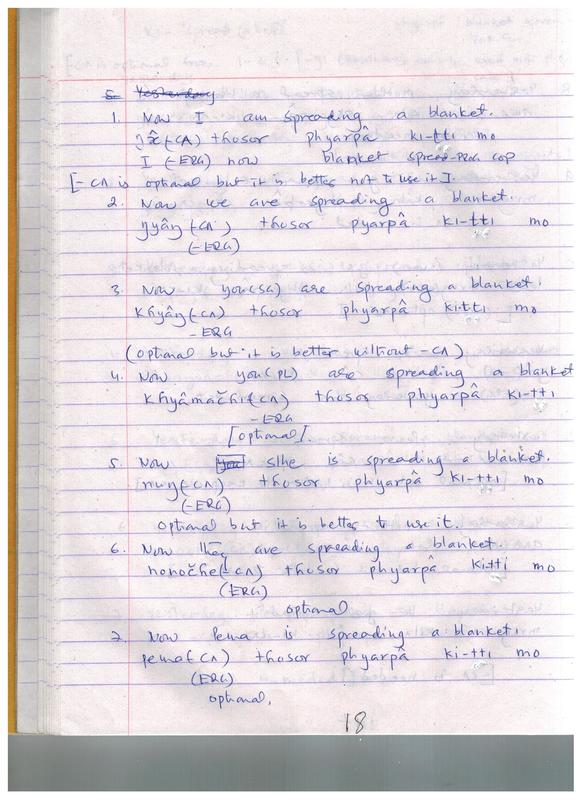 5. Yesterday
1. Now I am spreading a blanket.
(-CA) thosor phyarpâ ki-tti mo
I (-ERG) now blanket spread-PROG COP
[-CA is optional but it is better not to use it].
2. Now we are spreading a blanket.
ŋyâŋ (-CA) thosor pyarpâ ki-tti mo
(-ERG)
3. Now you(SG) are spreading a blanket.
khyâŋ (-CA) thosor phyarpâ ki-tti mo
-ERG
(optional but it is better without -CA)
4. Now you(PL) are spreading a blanket
khyâmačhi(-CA) thosor phyarpâ ki-tti
-ERG
[optional].
5. Now you s/he is spreading a blanket.
nuŋ(-CA) thosor phyarpâ ki-tti mo
(-ERG)
optional but it is better to use it.
6. Now they are spreading a blanket.
nonočhe(-CA) thosor phyarpâ ki-tti mo
(ERG)
optional
7. Now Pema is spreading a blanket.
pema(-CA) thosor phyarpâ ki-tti mo
(ERG)
optional.
18